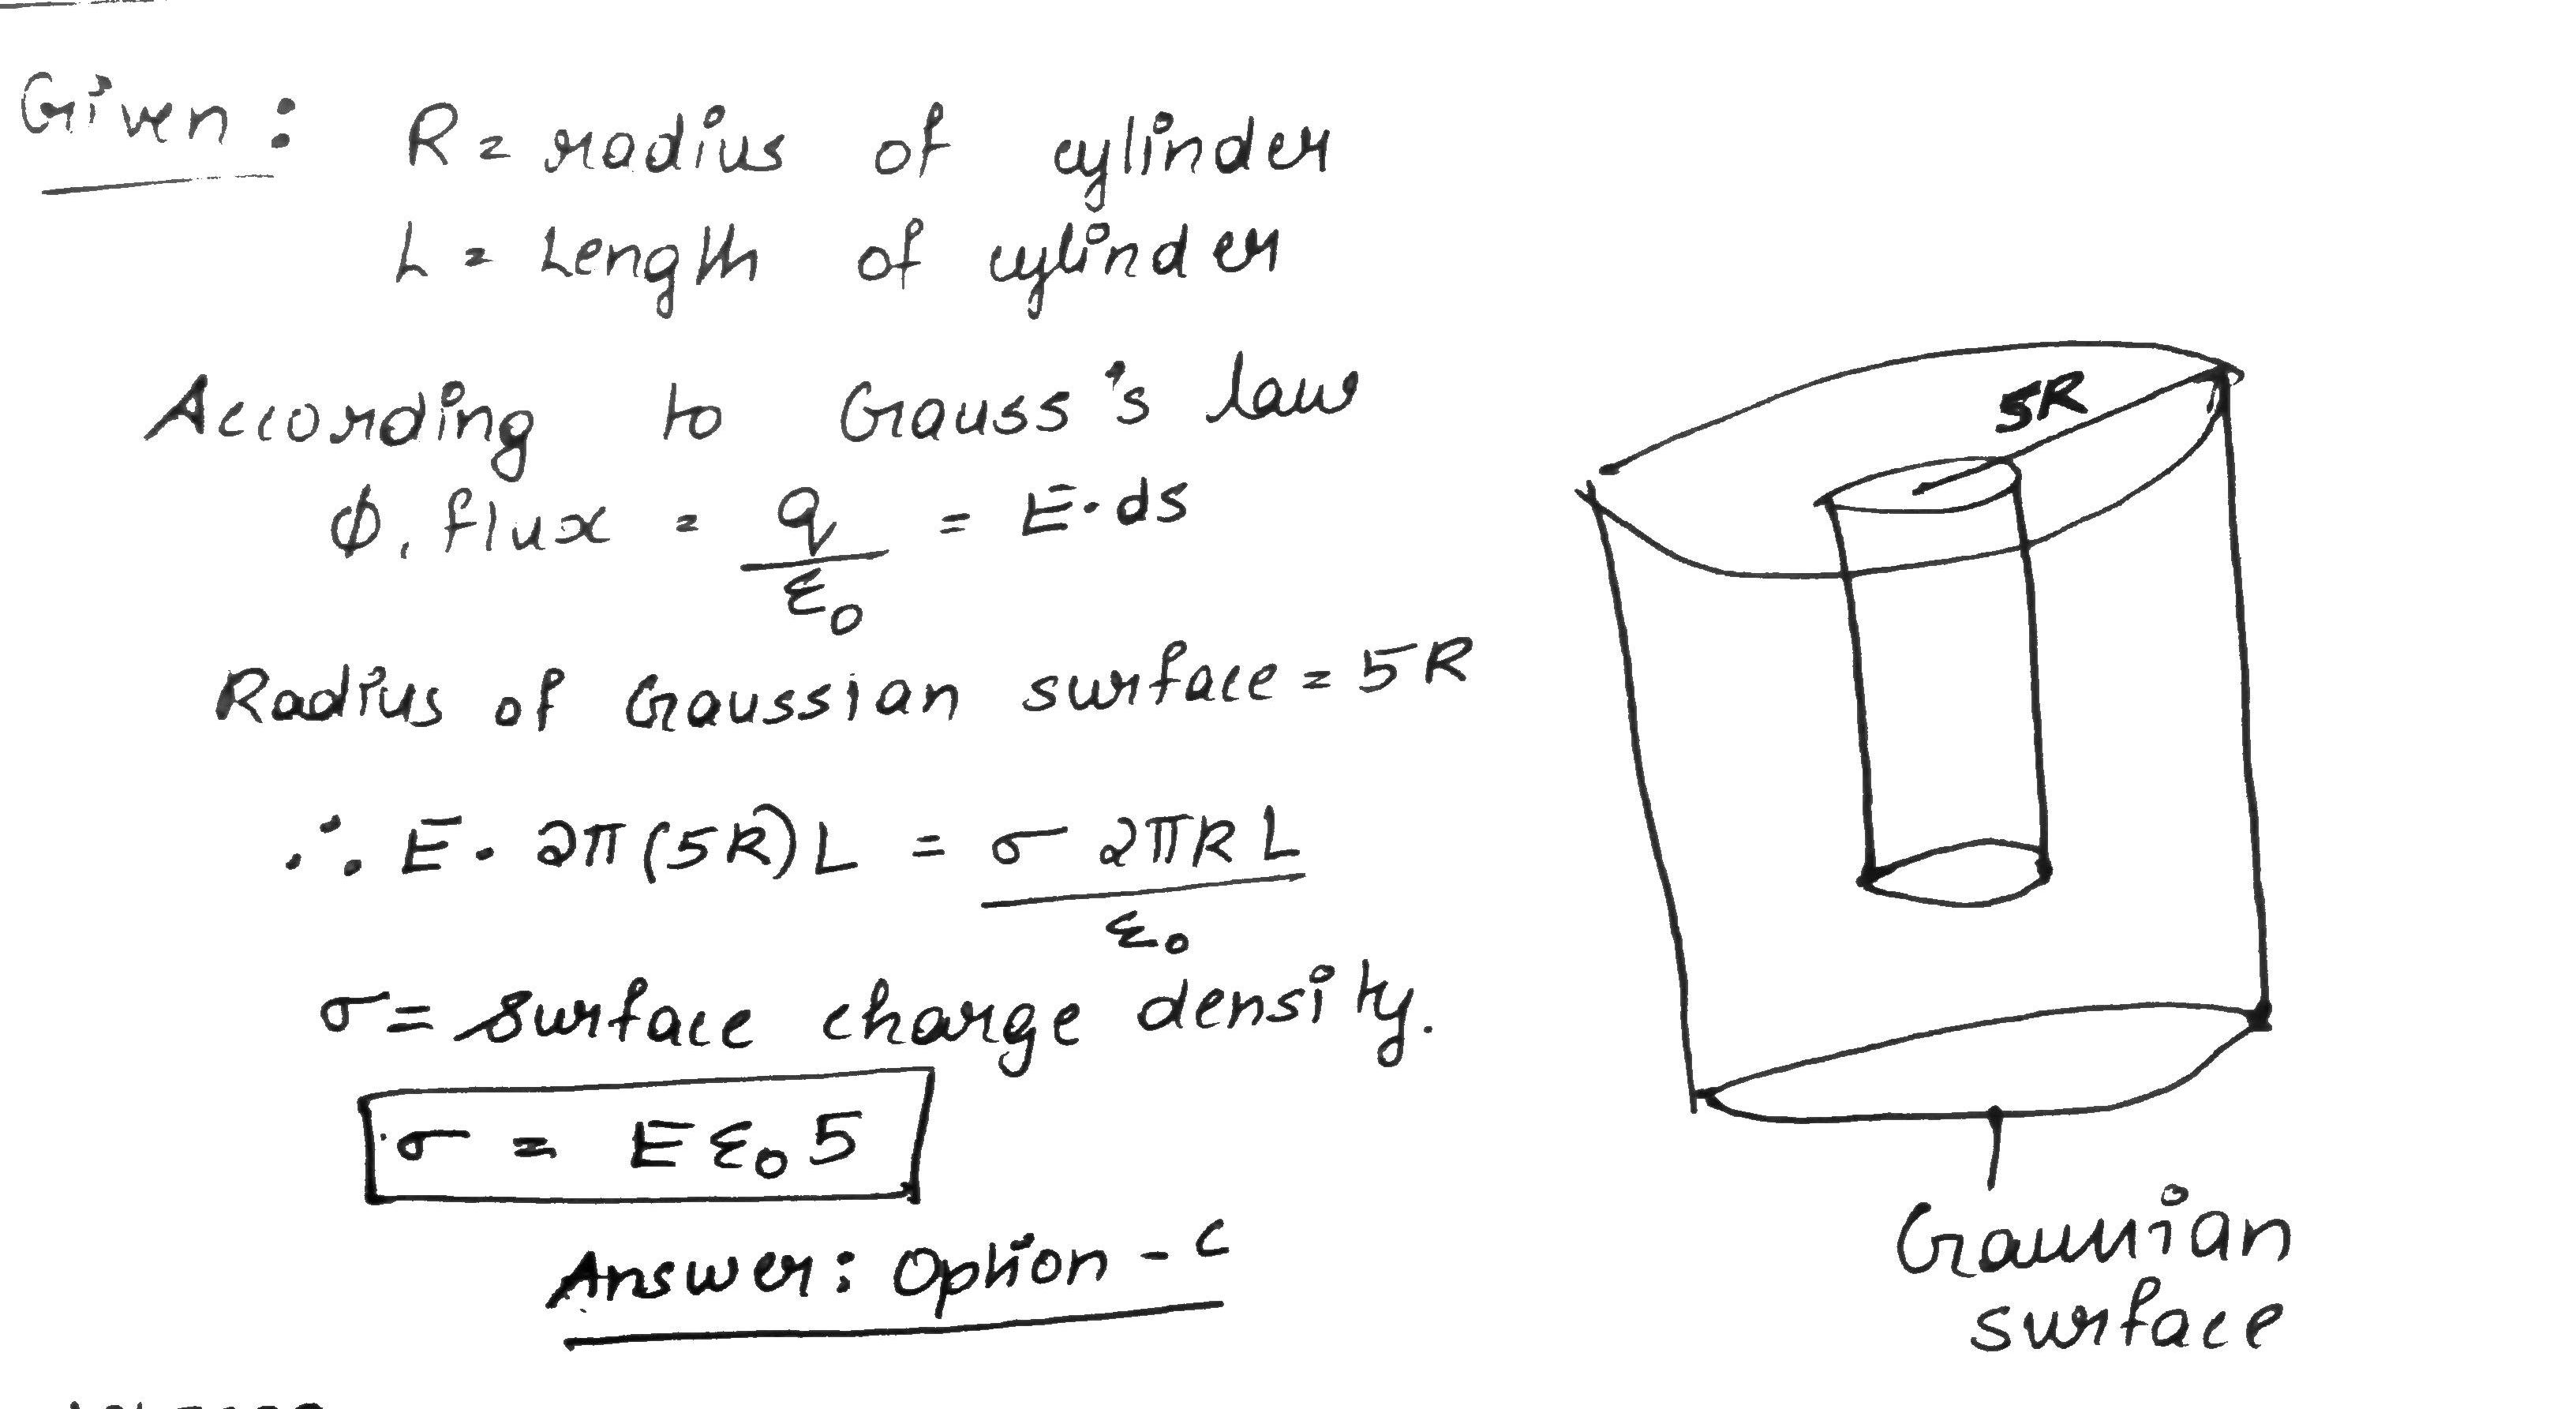 Given: R = radius of cylinder
L = Length of cylinder
According to Gauss's law
ϕ, flux = q/ε₀ = E·ds
Radius of Gaussian surface = 5R
∴ E · 2π(5R)L = σ 2πRL/ε₀
σ = surface charge density.
σ = Eε₀5
Answer: Option - C
5R
Gaussian
surface